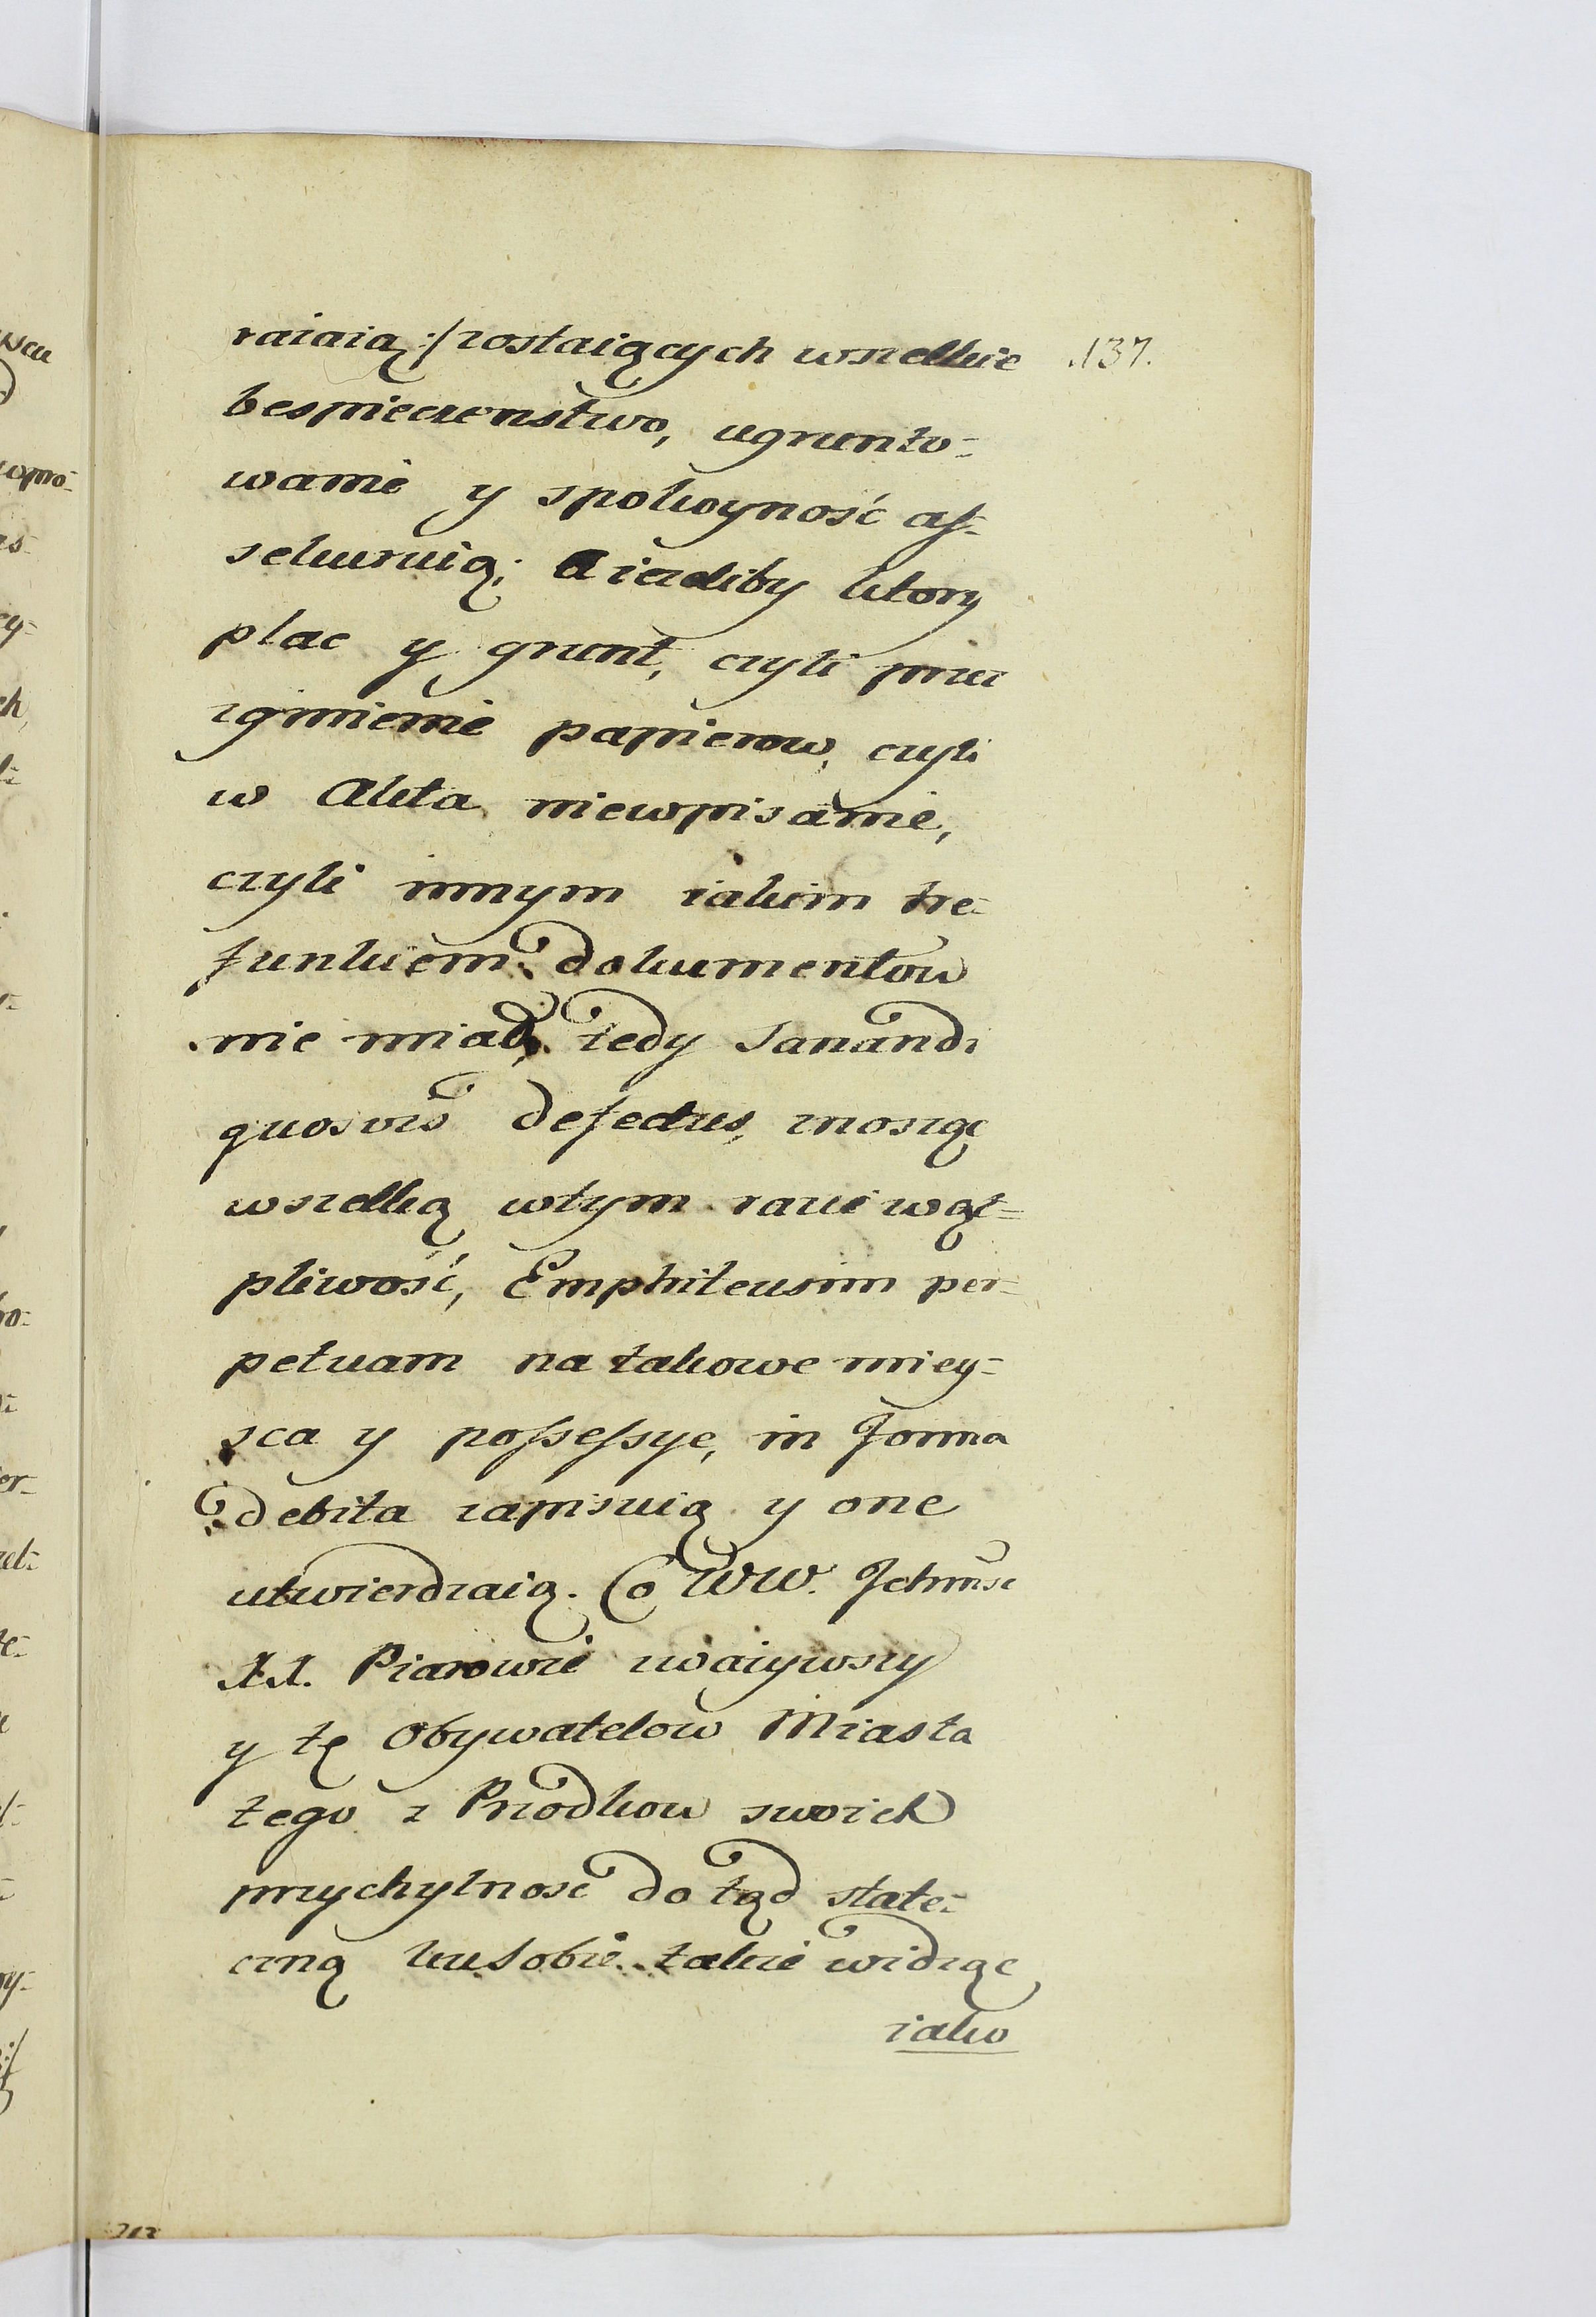 raiaią :/ zostaiących wszelkie
137.
bespieczenstwo, ugrunto-
wanie y spokoyność as-
sekuruią; a ieżeliby ktory
plac y grunt, czyli przez
zginienie papierow, czyli
w Akta niewpisanie,
czyli innym iakim tre-
funkiem dokumentow
nie miał, tedy sanandi
quosvis defectus, znosząc
wszelką wtym razie wąt-
pliwość, Emphiteusim per-
petuam na takowe miey-
sca y possessye, in Forma
debita zapisuią y one
utwierdzaią. Co WW. Jchmsc
XX. Piarowie zważywszy
y tę Obywatelow Miasta
tego z Przodkow swoich
przychylnosć do tąd state-
czną ku sobie także widząc
iako